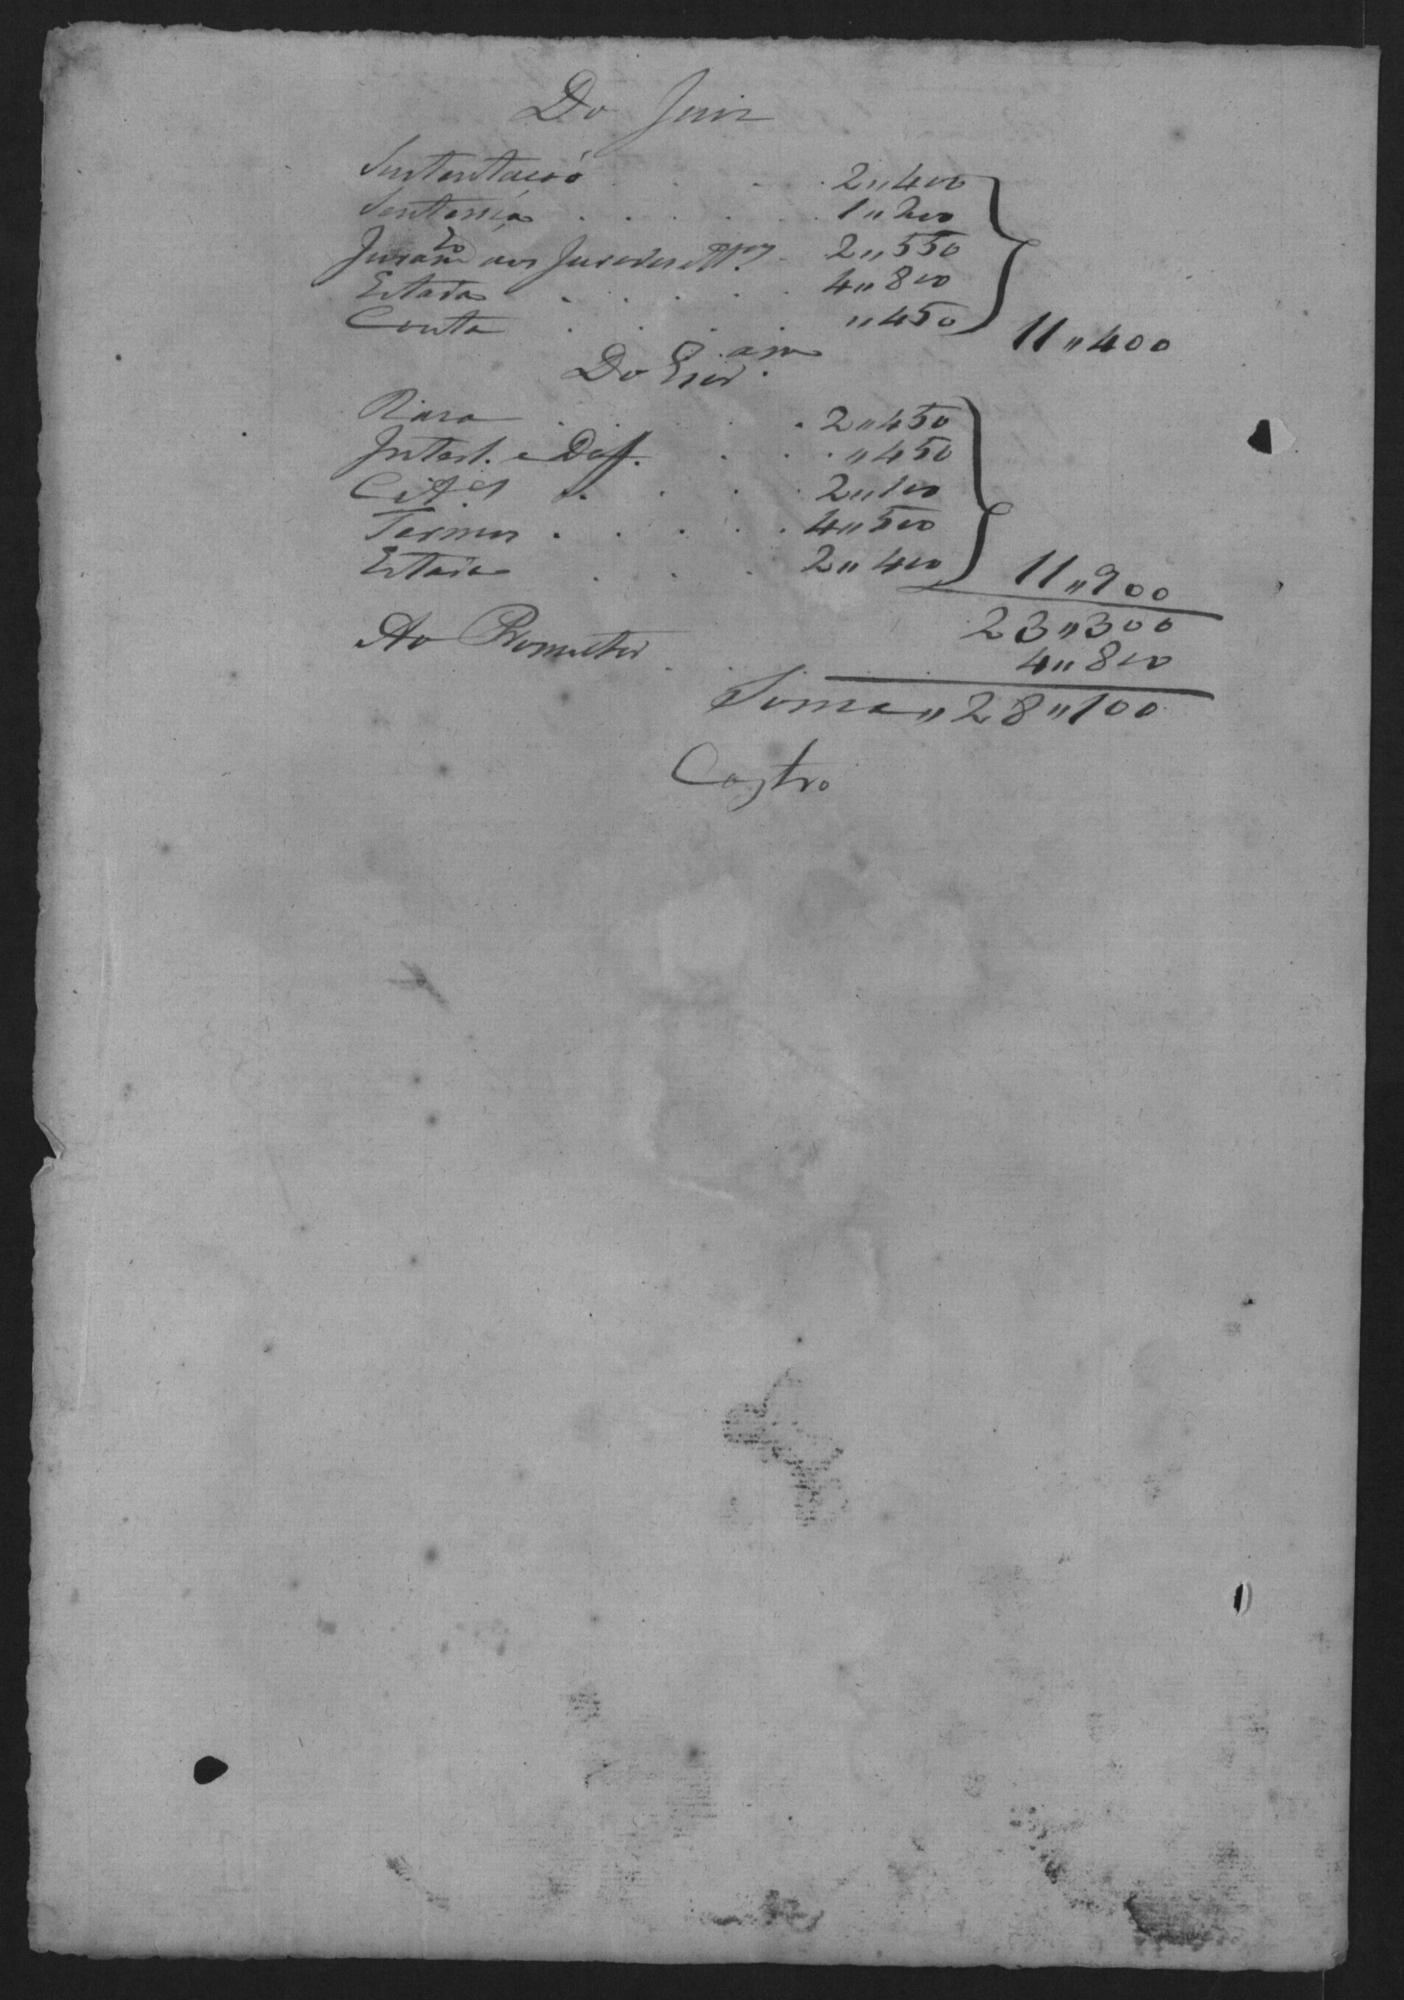 Do Juiz
Sustentació . . . 2"400
Sentensa . . . . . 1"200
Juramto aos Jurados e 2"550
Estada . . . . . 4"800
Conta . . . . "450
11"400
Do Escrivam
Raza . . . . . 2"450
Intert. e Def. . . . "450
Cit.es . . . . 2"100
Termos . . . . . 4"500
Estada . . . 2"400
11"900
23"300
Ao Promotor . . 4"800
Soma " 28"100
Castro